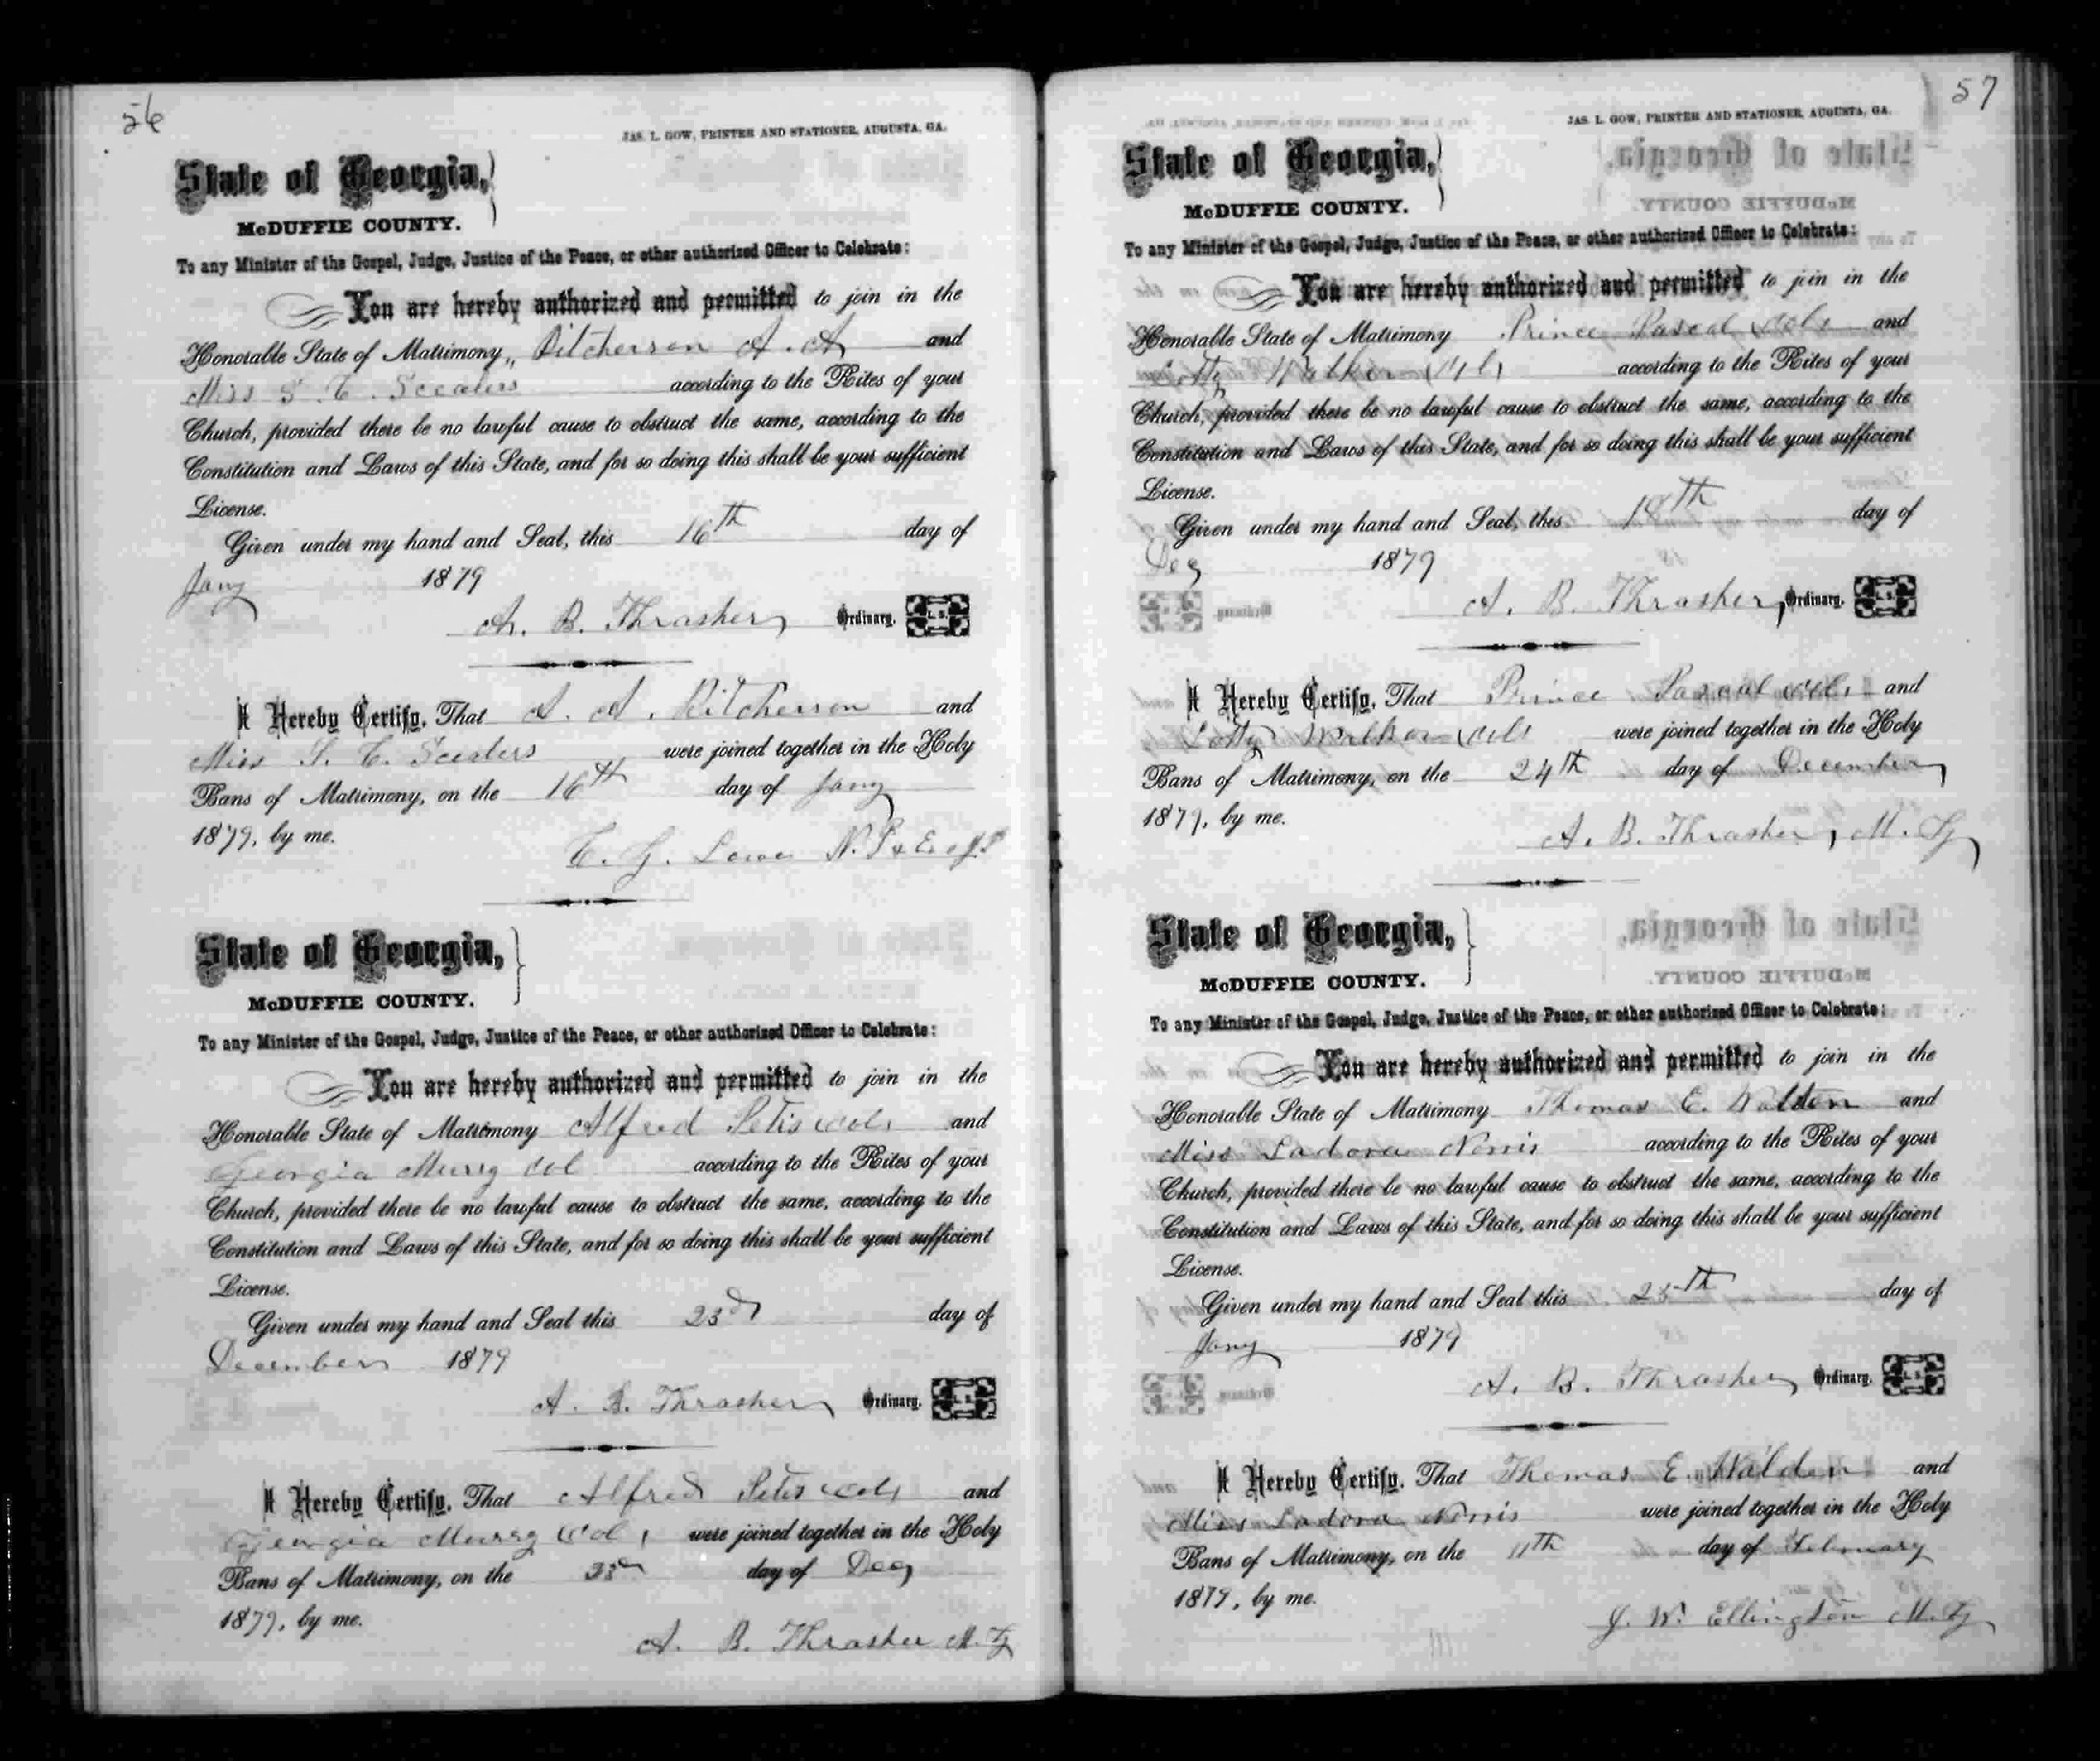 56
JAS. L. GOW, PRINTER AND STATIONER, AUGUSTA, GA.
State of Georgia,
McDUFFIE COUNTY.
To any Minister of the Gospel, Judge, Justice of the Peace, or other authorized Officer to Celebrate:
You are hereby authorized and permitted to join in the
Honorable State of Matrimony, Pitcherson A. A and
Miss S. C. according to the Rites of your
Church, provided there be no lawful cause to obstruct the same, according to the
Constitution and Laws of this State, and for so doing this shall be your sufficient
License.
Given under my hand and Seal, this 16th day of
Jany 1879
A. B. Thrasher Ordinary. L.S.
I Hereby Certify, That A. A. Pitcherson and
Miss S. C. were joined together in the Holy
Bans of Matrimony, on the 16th day of Jany
1879, by me.
C. G. Lowe N. P. & Ex of J.P
State of Georgia,
McDUFFIE COUNTY.
To any Minister of the Gospel, Judge, Justice of the Peace, or other authorized Officer to Celebrate:
You are hereby authorized and permitted to join in the
Honorable State of Matrimony Alfred Petis col. and
Georgia Murry Col according to the Rites of your
Church, provided there be no lawful cause to obstruct the same, according to the
Constitution and Laws of this State, and for so doing this shall be your sufficient
License.
Given under my hand and Seal this 23d day of
December 1879
A. B. Thrasher Ordinary. L.S.
I Hereby Certify, That Alfred Petis col, and
Georgia Murry Col, were joined together in the Holy
Bans of Matrimony, on the 23d day of Dec
1879, by me.
A. B. Thrasher M. G
57
JAS. L. GOW, PRINTER AND STATIONER, AUGUSTA, GA.
State of Georgia,
McDUFFIE COUNTY.
To any Minister of the Gospel, Judge, Justice of the Peace, or other authorized Officer to Celebrate:
You are hereby authorized and permitted to join in the
Honorable State of Matrimony Prince Pascal col. and
Lotty Walker col, according to the Rites of your
Church, provided there be no lawful cause to obstruct the same, according to the
Constitution and Laws of this State, and for so doing this shall be your sufficient
License.
Given under my hand and Seal, this 18th day of
Dec 1879
A. B. Thrasher, Ordinary. L.S.
I Hereby Certify, That Prince Pascal col. and
Lotty Walker col were joined together in the Holy
Bans of Matrimony, on the 24th day of December
1879, by me.
A. B. Thrasher, M. G
State of Georgia,
McDUFFIE COUNTY.
To any Minister of the Gospel, Judge, Justice of the Peace, or other authorized Officer to Celebrate:
You are hereby authorized and permitted to join in the
Honorable State of Matrimony Thomas E. Walden and
Miss Ladora Norris according to the Rites of your
Church, provided there be no lawful cause to obstruct the same, according to the
Constitution and Laws of this State, and for so doing this shall be your sufficient
License.
Given under my hand and Seal this day of
Jany 1879
A. B. Thrasher Ordinary. L.S.
I Hereby Certify, That Thomas E. Walden and
Miss Ladora Norris were joined together in the Holy
Bans of Matrimony, on the 11th day of February
1879, by me.
J. W. Ellington M. G